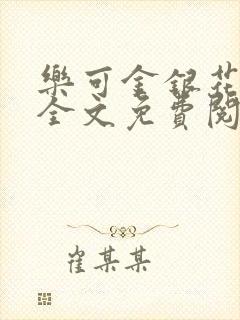 樂可金銀花
全文免費閱
崔某某